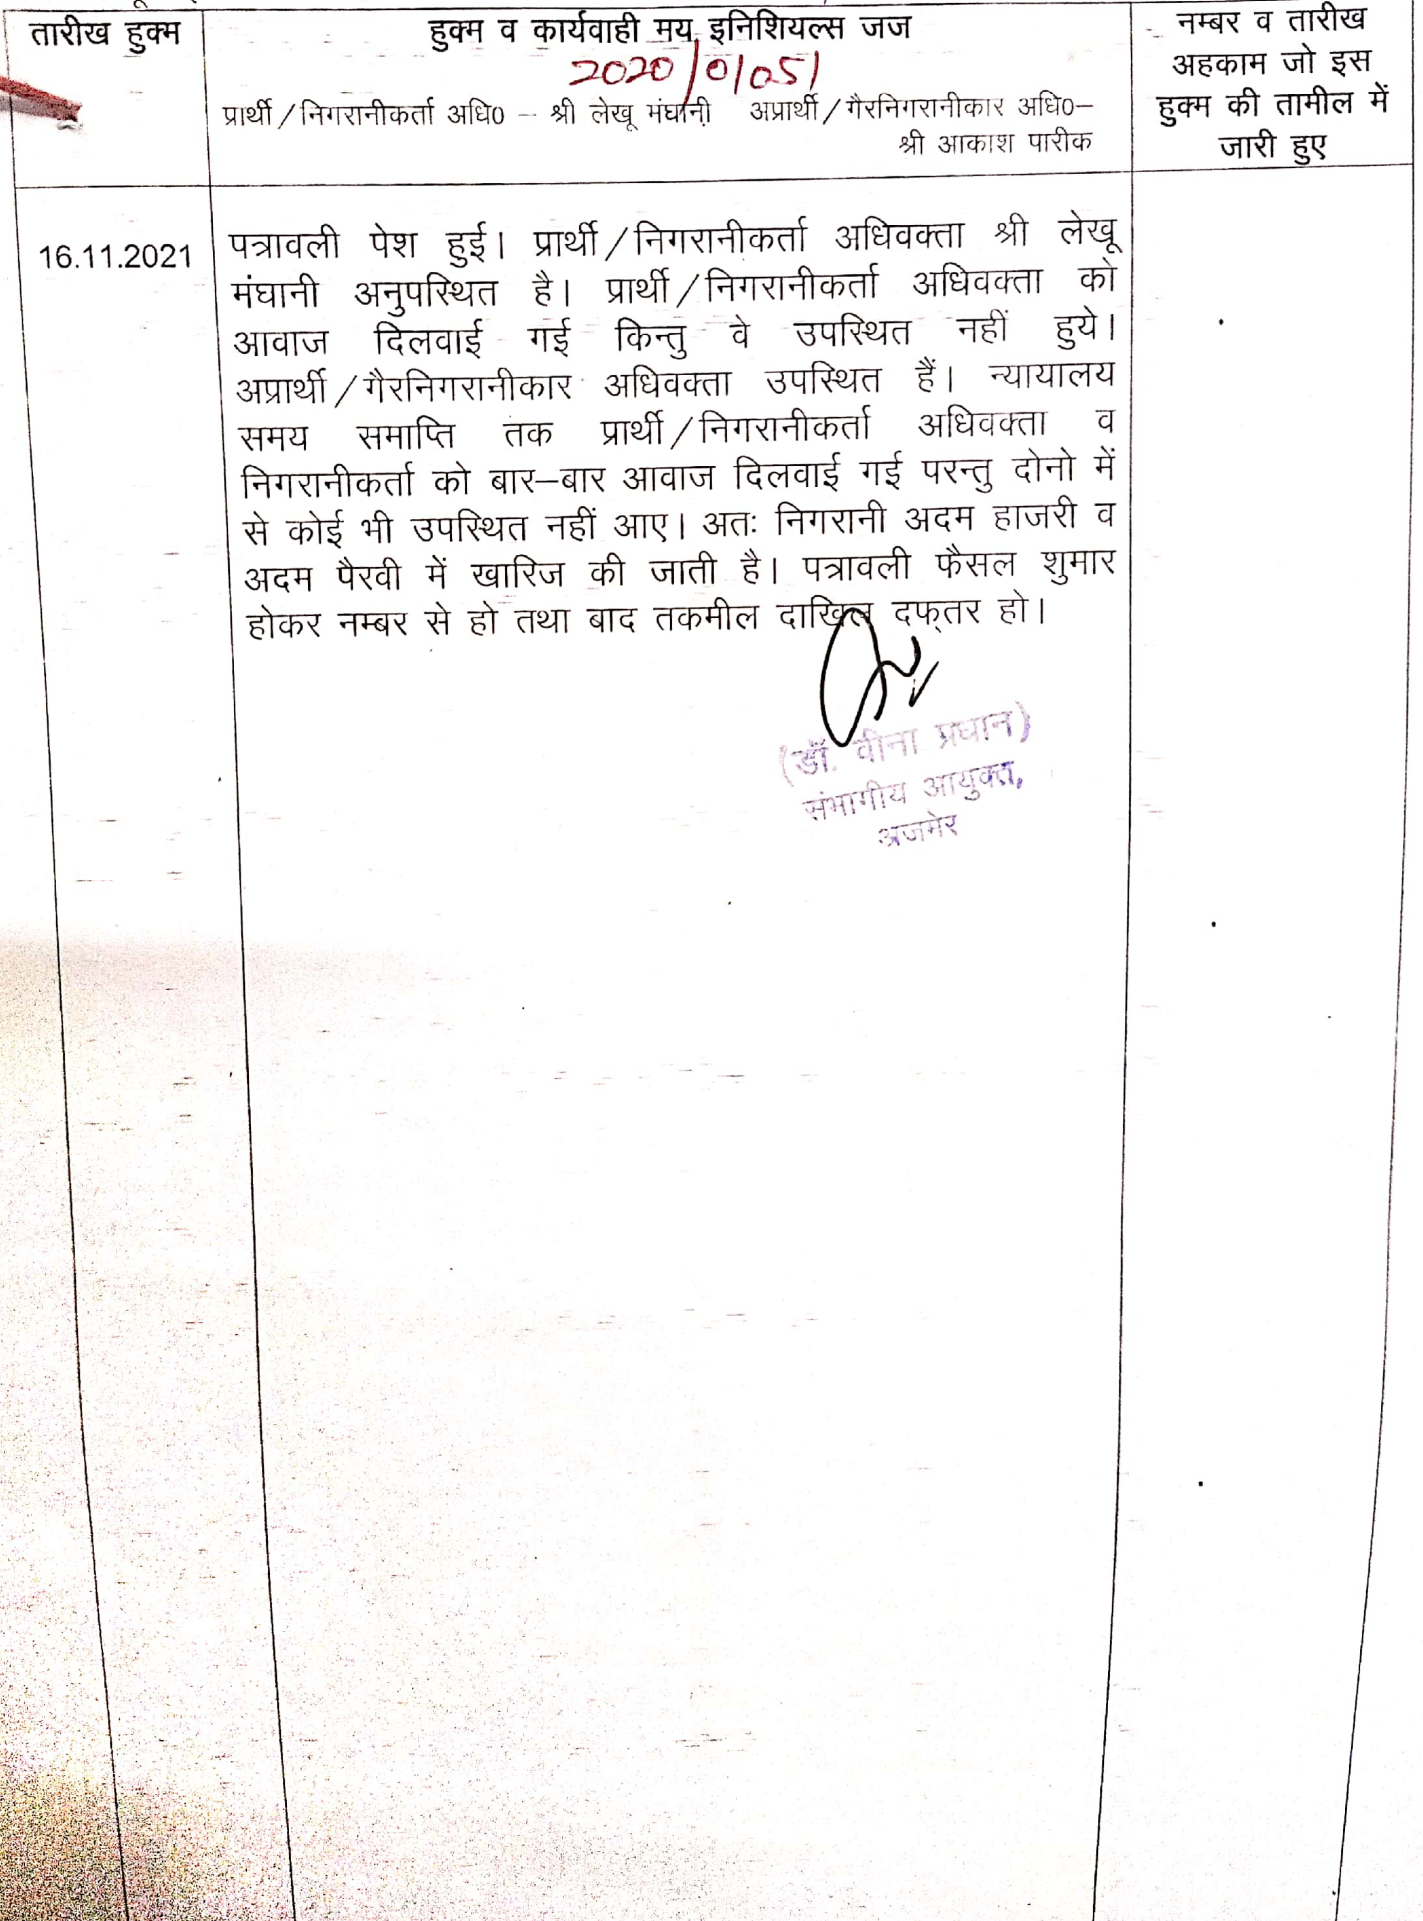 तारीख हुक्म
हुक्म व कार्यवाही मय इनिशियल्स जज
2020/01051
प्रार्थी/निगरानीकर्ता अधि0 – श्री लेखू मंघानी अप्रार्थी/गैरनिगरानीकार अधि0–
श्री आकाश पारीक
नम्बर व तारीख
अहकाम जो इस
हुक्म की तामील में
जारी हुए
16.11.2021
पत्रावली पेश हुई। प्रार्थी/निगरानीकर्ता अधिवक्ता श्री लेखू
मंघानी अनुपस्थित है। प्रार्थी/निगरानीकर्ता अधिवक्ता को
आवाज दिलवाई गई किन्तु वे उपस्थित नहीं हुये।
अप्रार्थी/गैरनिगरानीकार अधिवक्ता उपस्थित हैं। न्यायालय
समय समाप्ति तक प्रार्थी/निगरानीकर्ता अधिवक्ता व
निगरानीकर्ता को बार–बार आवाज दिलवाई गई परन्तु दोनो में
से कोई भी उपस्थित नहीं आए। अतः निगरानी अदम हाजरी व
अदम पैरवी में खारिज की जाती है। पत्रावली फैसल शुमार
होकर नम्बर से हो तथा बाद तकमील दाखिल दफ्तर हो।
(डॉ. वीना प्रधान)
संभागीय आयुक्त,
अजमेर